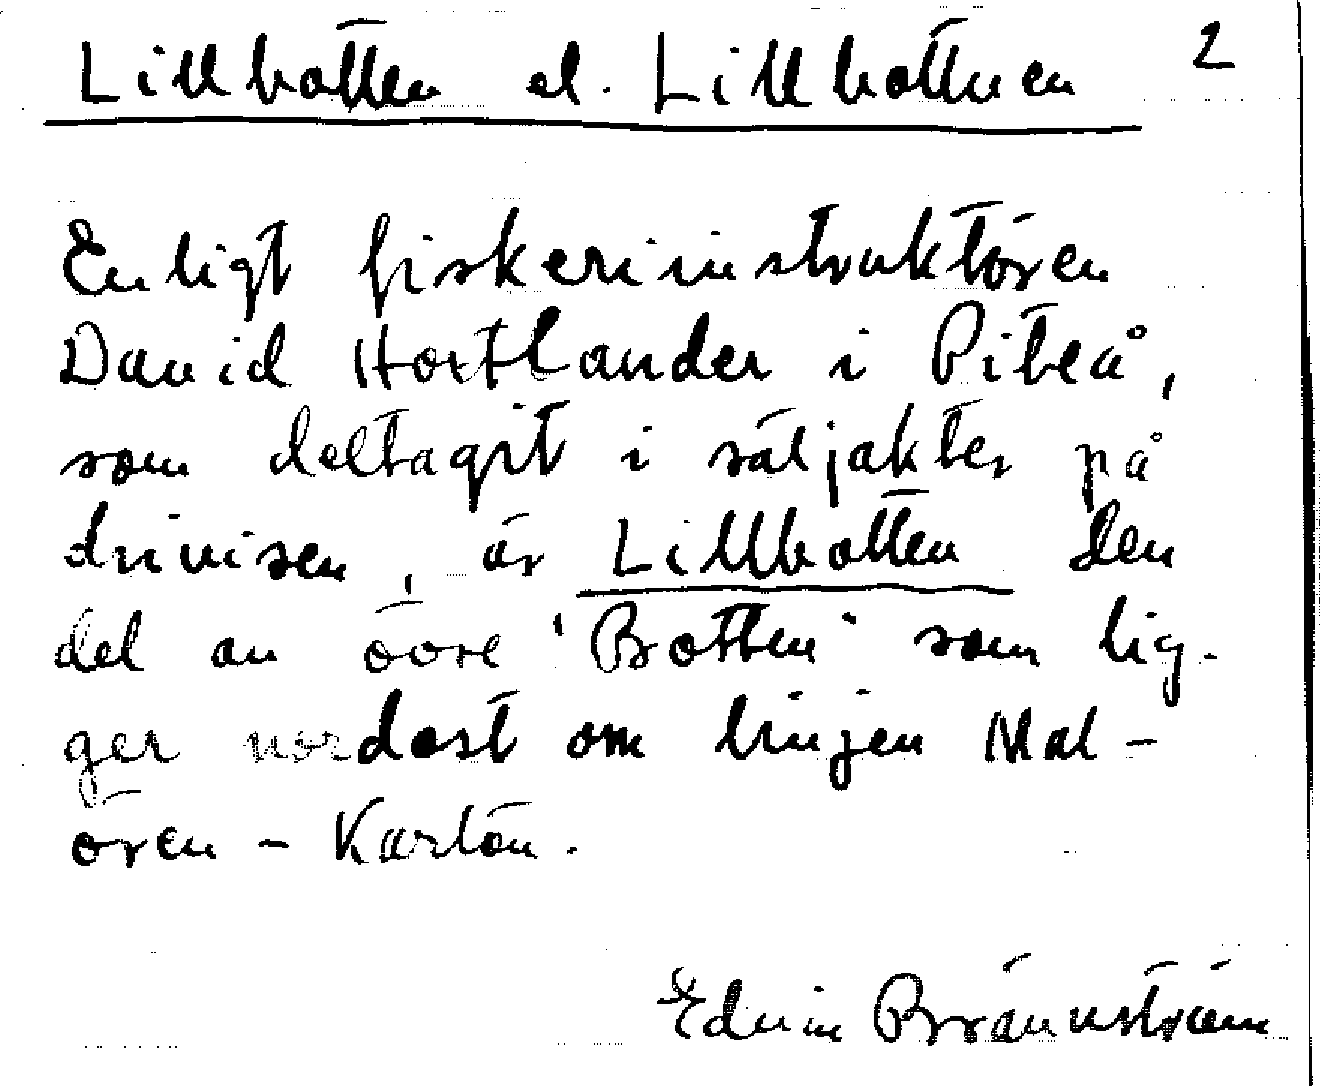 Lillbotten el. Lillbottnen 2
Enligt fiskeriinstruktören
David Hortlander i Piteå,
som deltagit i säljakter på
drivisen, är Lillbotten den
del av övre "Botten" som lig-
ger nordost om linjen Mal-
ören - Karlön.
Edvin Brännström